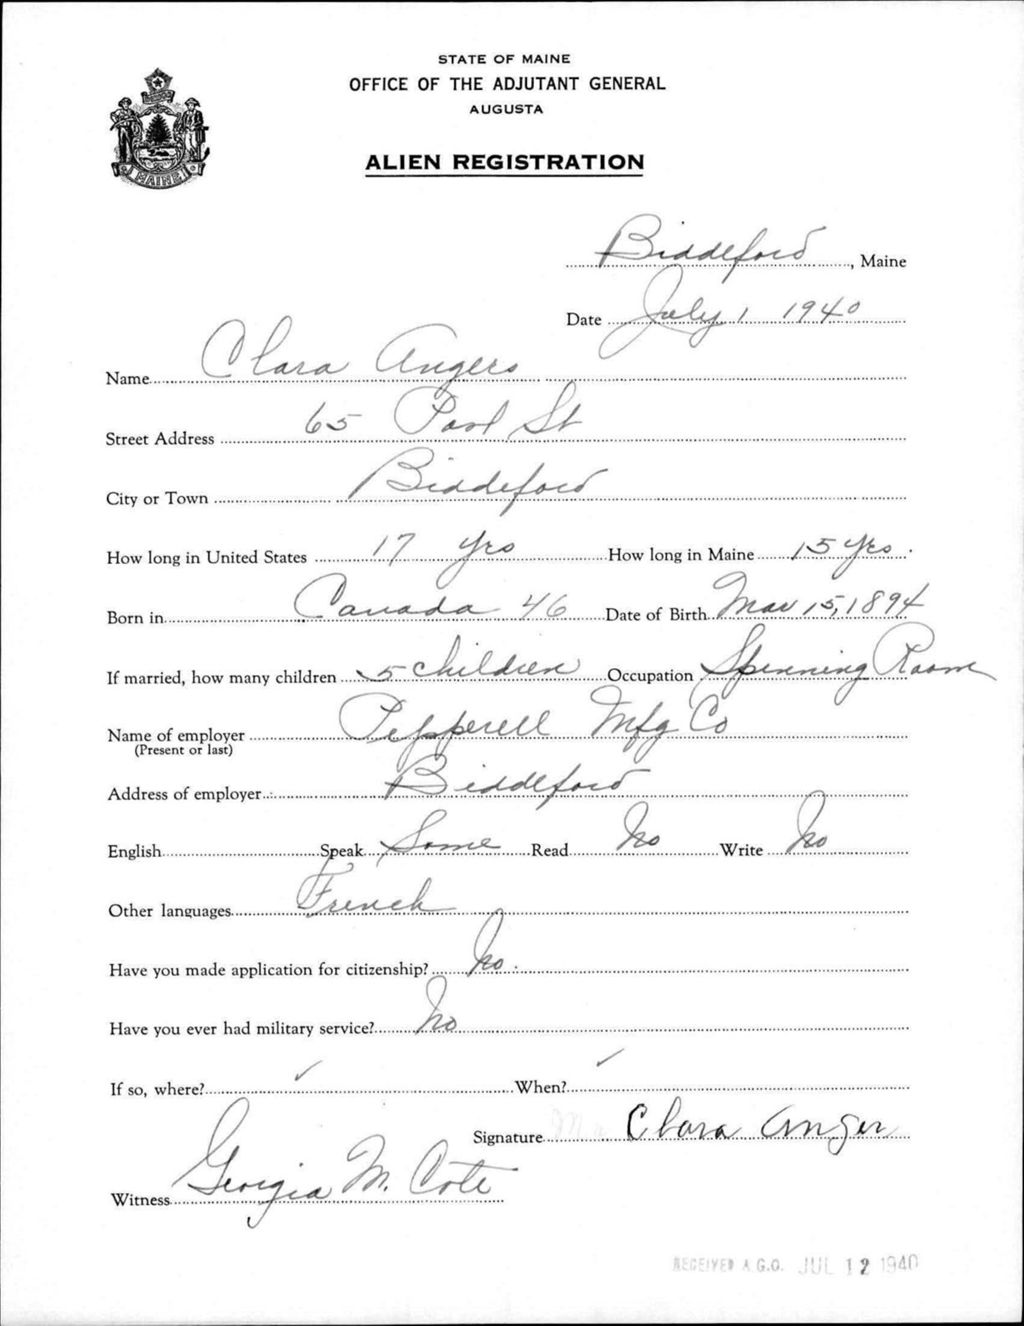 STATE OF MAINE
OFFICE OF THE ADJUTANT GENERAL
AUGUSTA
ALIEN REGISTRATION
MAINE
Biddeford, Maine
Date July 1 1940
Name Clara Angers
Street Address 65 Pool St
City or Town Biddeford
How long in United States 17 yrs How long in Maine 15 yrs
Born in Canada 46 Date of Birth Mar 15, 1894
If married, how many children 5 children Occupation Spinning Room
Name of employer Pepperell Mfg Co
(Present or last)
Address of employer Biddeford
English Speak Some Read No Write No
Other languages French
Have you made application for citizenship? No
Have you ever had military service? No
If so, where? ✓ When? ✓
Signature Clara Anger
Witness Georgia M. Cote
RECEIVED A.G.O. JUL 12 1940